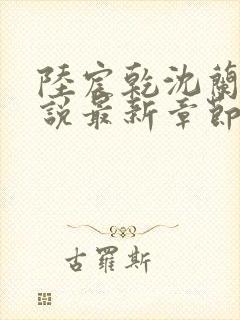 陸宸乾沈蘭
說最新章節
古羅斯